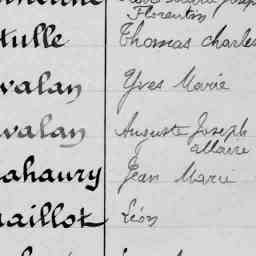 Florentin
tulle Thomas Charles
valan Yves Marie
valan Auguste Joseph
allaire
ahaury Jean Marie
aillot Léon